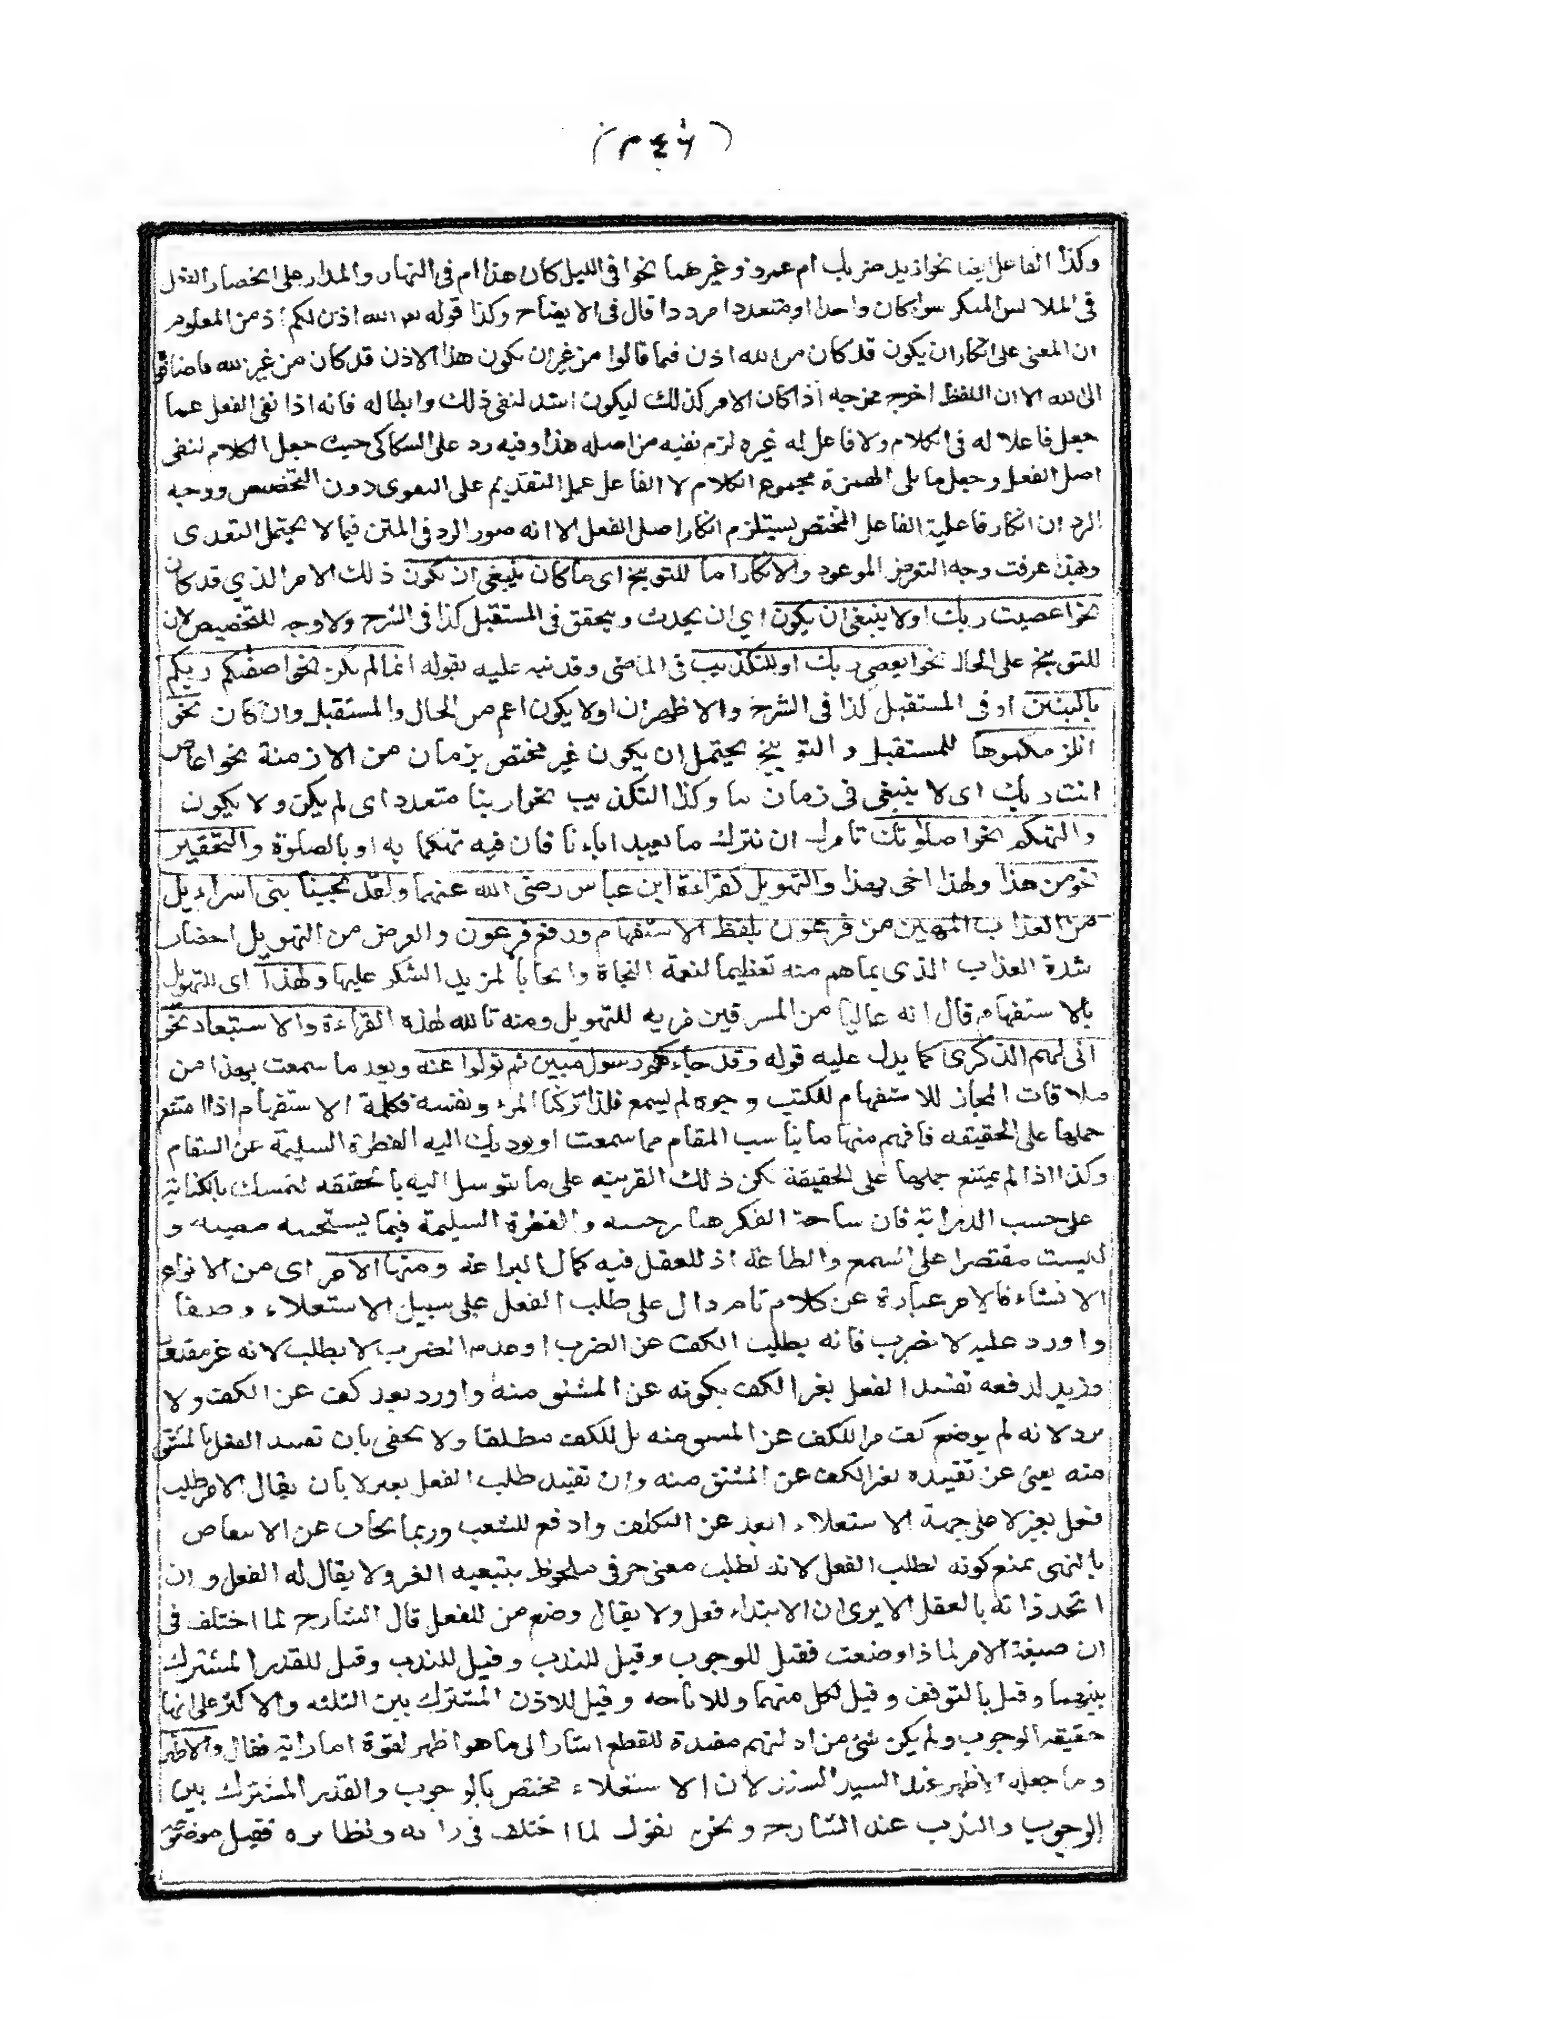 (٢٤٦)
وكذا الفاعل ايضا نحو ازيد ضرباك ام عمرو وغيرهما نحو ا فى الليل كان هذا ام فى النهار والمدار على انحصار الفعل
فى الملابس المنكر سواء كان واحدا او متعددا مرددا قال فى الايضاح وكذا قوله الله اذن لكم اذ من المعلوم
ان المعنى على انكار ان يكون قد كان من الله اذن فيما قالوا من غير ان يكون هذا الاذن قد كان من غير الله فاضافوه
الى الله الا ان اللفظ اخرج مخرجه اذا كان الامر كذلك ليكون اشد لنفى ذلك وابطاله فانه اذا نفى الفعل عما
جعل فاعلا له فى الكلام ولا فاعل له غيره لزم نفيه من اصله هذا وفيه رد على السكاكى حيث جعل الكلام لنفى
اصل الفعل وجعل ما يلى الهمزة مجموع الكلام لا الفاعل عمل التقديم على التقوى دون التخصيص ووجه
الرد ان انكار فاعلية الفاعل المختص يستلزم انكار اصل الفعل الا انه صور الرد فى المتن فيما لا يحتمل التعدى
وبهذا عرفت وجه التعرض الموعود والانكار اما للتوبيخ اى ما كان ينبغى ان يكون ذلك الامر الذي قد كان
نحو اعصيت ربك او لا ينبغى ان يكون اي ان يحدث ويتحقق فى المستقبل كذا فى الشرح ولا وجه للتخصيص لان
للتوبيخ على الحال نحو ا يعصى ربك او للتكذيب فى الماضى وقد نبه عليه بقوله اى لم يكن نحو افاصفيكم ربكم
بالبنين او فى المستقبل كذا فى الشرح والاظهر ان او لا يكون اعم من الحال والمستقبل وان كان نحو
انلزمكموها للمستقبل والتوبيخ يحتمل ان يكون غير مختص بزمان من الازمنة نحو اعاص
انت ربك اى لا ينبغى فى زمان ما وكذا التكذيب نحو اربنا متعدد اى لم يكن ولا يكون
والتهكم نحو اصلوتك تامرك ان نترك ما يعبد اباءنا فان فيه تهكما به او بالصلوة والتحقير
نحو من هذا ولهذا اخى بهذا والتهويل كقراءة ابن عباس رضى الله عنهما ولقد نجينا بنى اسراءيل
من العذاب المهين من فرعون بلفظ الاستفهام ورفع فرعون والغرض من التهويل احضار
شدة العذاب الذى نجاهم منه تعظيما لنعمة النجاة وايجابا لمزيد الشكر عليها ولهذا اى للتهويل
بالاستفهام قال انه عاليا من المسرفين فريه للتهويل ومنه تالله لهذه القراءة والاستبعاد نحو
انى لهم الذكرى كما يدل عليه قوله وقد جاءهم رسول مبين ثم تولوا عنه وبعد ما سمعت بهذا من
ملاقات المجاز للاستفهام للكتب وجوه لم يسمع فلذا تركنا المرء ونفسه فكلمة الاستفهام اذا امتنع
حملها على الحقيقه فافهم منها ما يناسب المقام مما سمعت او يوديك اليه الفطرة السليمة عن السقام
وكذا اذا لم يمتنع حملها على الحقيقة لكن ذلك القرينه على ما يتوسل اليه بالحقيقه لتمسك بالكناية
على حسب الدراية فان ساحة الفكر هنا رحبه والفطرة السليمة فيما يستحبه مصيبه و
ليست مقتصرا على السمع والطاعة اذ للعقل فيه كمال البراعه ومنها الامر اى من الانواع
الانشاء فالامر عبارة عن كلام تام دال على طلب الفعل على سبيل الاستعلاء وضعا
واورد عليه لا تضرب فانه يطلب الكف عن الضرب او عدم الضرب لا يطلب لانه غير مقدور
وزيد لدفعه تقييد الفعل بغير الكف بكونه عن المشتق منه واورد بعد كف عن الكف ولا
يرد لانه لم يوضع كف مرا للكف عن المشتق منه بل للكف مطلقا ولا يخفى بان تقييد الفعل بالمشتق
منه يغنى عن تقييده بغير الكف عن المشتق منه وان تقييد طلب الفعل بغير لا بان يقال الامر طلب
فعل بغير لا على جهة الاستعلاء ابعد عن التكلف وادفع للشعب وربما يجاب عن الانتقاض
بالنهى بمنع كونه لطلب الفعل لانه لطلب معنى حرفى ملحوظ بتبعيه الغير ولا يقال له الفعل وان
اتحد ذاته بالعقل الا يرى ان الابتداء فعل ولا يقال وضع من للفعل قال الشارح لما اختلف فى
ان صيغة الامر لماذا وضعت فقيل للوجوب وقيل للندب وقيل للندب وقيل للقدر المشترك
بينهما وقيل بالتوقف وقيل لكل منهما وللاباحه وقيل للاذن المشترك بين الثلثه والاكثر على انها
حقيقه الوجوب ولم يكن شئ من ادلتهم مفيدة للقطع اشار الى ما هو اظهر لقوة اماراته فقال والاظهر
وما جعله الاظهر عند السيد السند لان الاستعلاء مختص بالوجوب والقدر المشترك بين
الوجوب والندب عند الشارح ونحن نقول لما اختلف فى ونظائره فقيل موضوعة